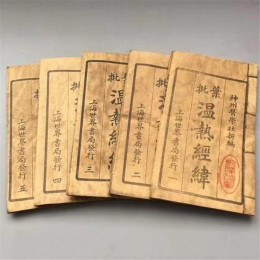 神州醫學社新編
葉批
温熱經緯
上海世界書局發行 一
批
温熱經緯
上海世界書局發行 二
批
温熱經緯
上海世界書局發行 三
批
上海世界書局發行 四
批
上海世界書局發行 五